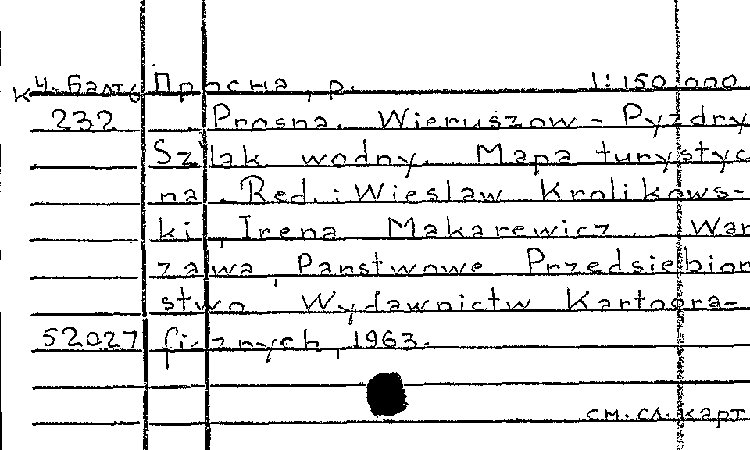 К Ч. Балт Просна, р. 1:150 000
232 Prosna. Wieruszow – Pyzdry
Szlak wodny. Mapa turystyc
na. Red.: Wieslaw Krolikows-
ki, Irena Makarewicz. War
zawa, Panstwowe Przedsiebior
stwo Wydawnictw Kartogra-
52027 ficznych, 1963.
см. сл. карт